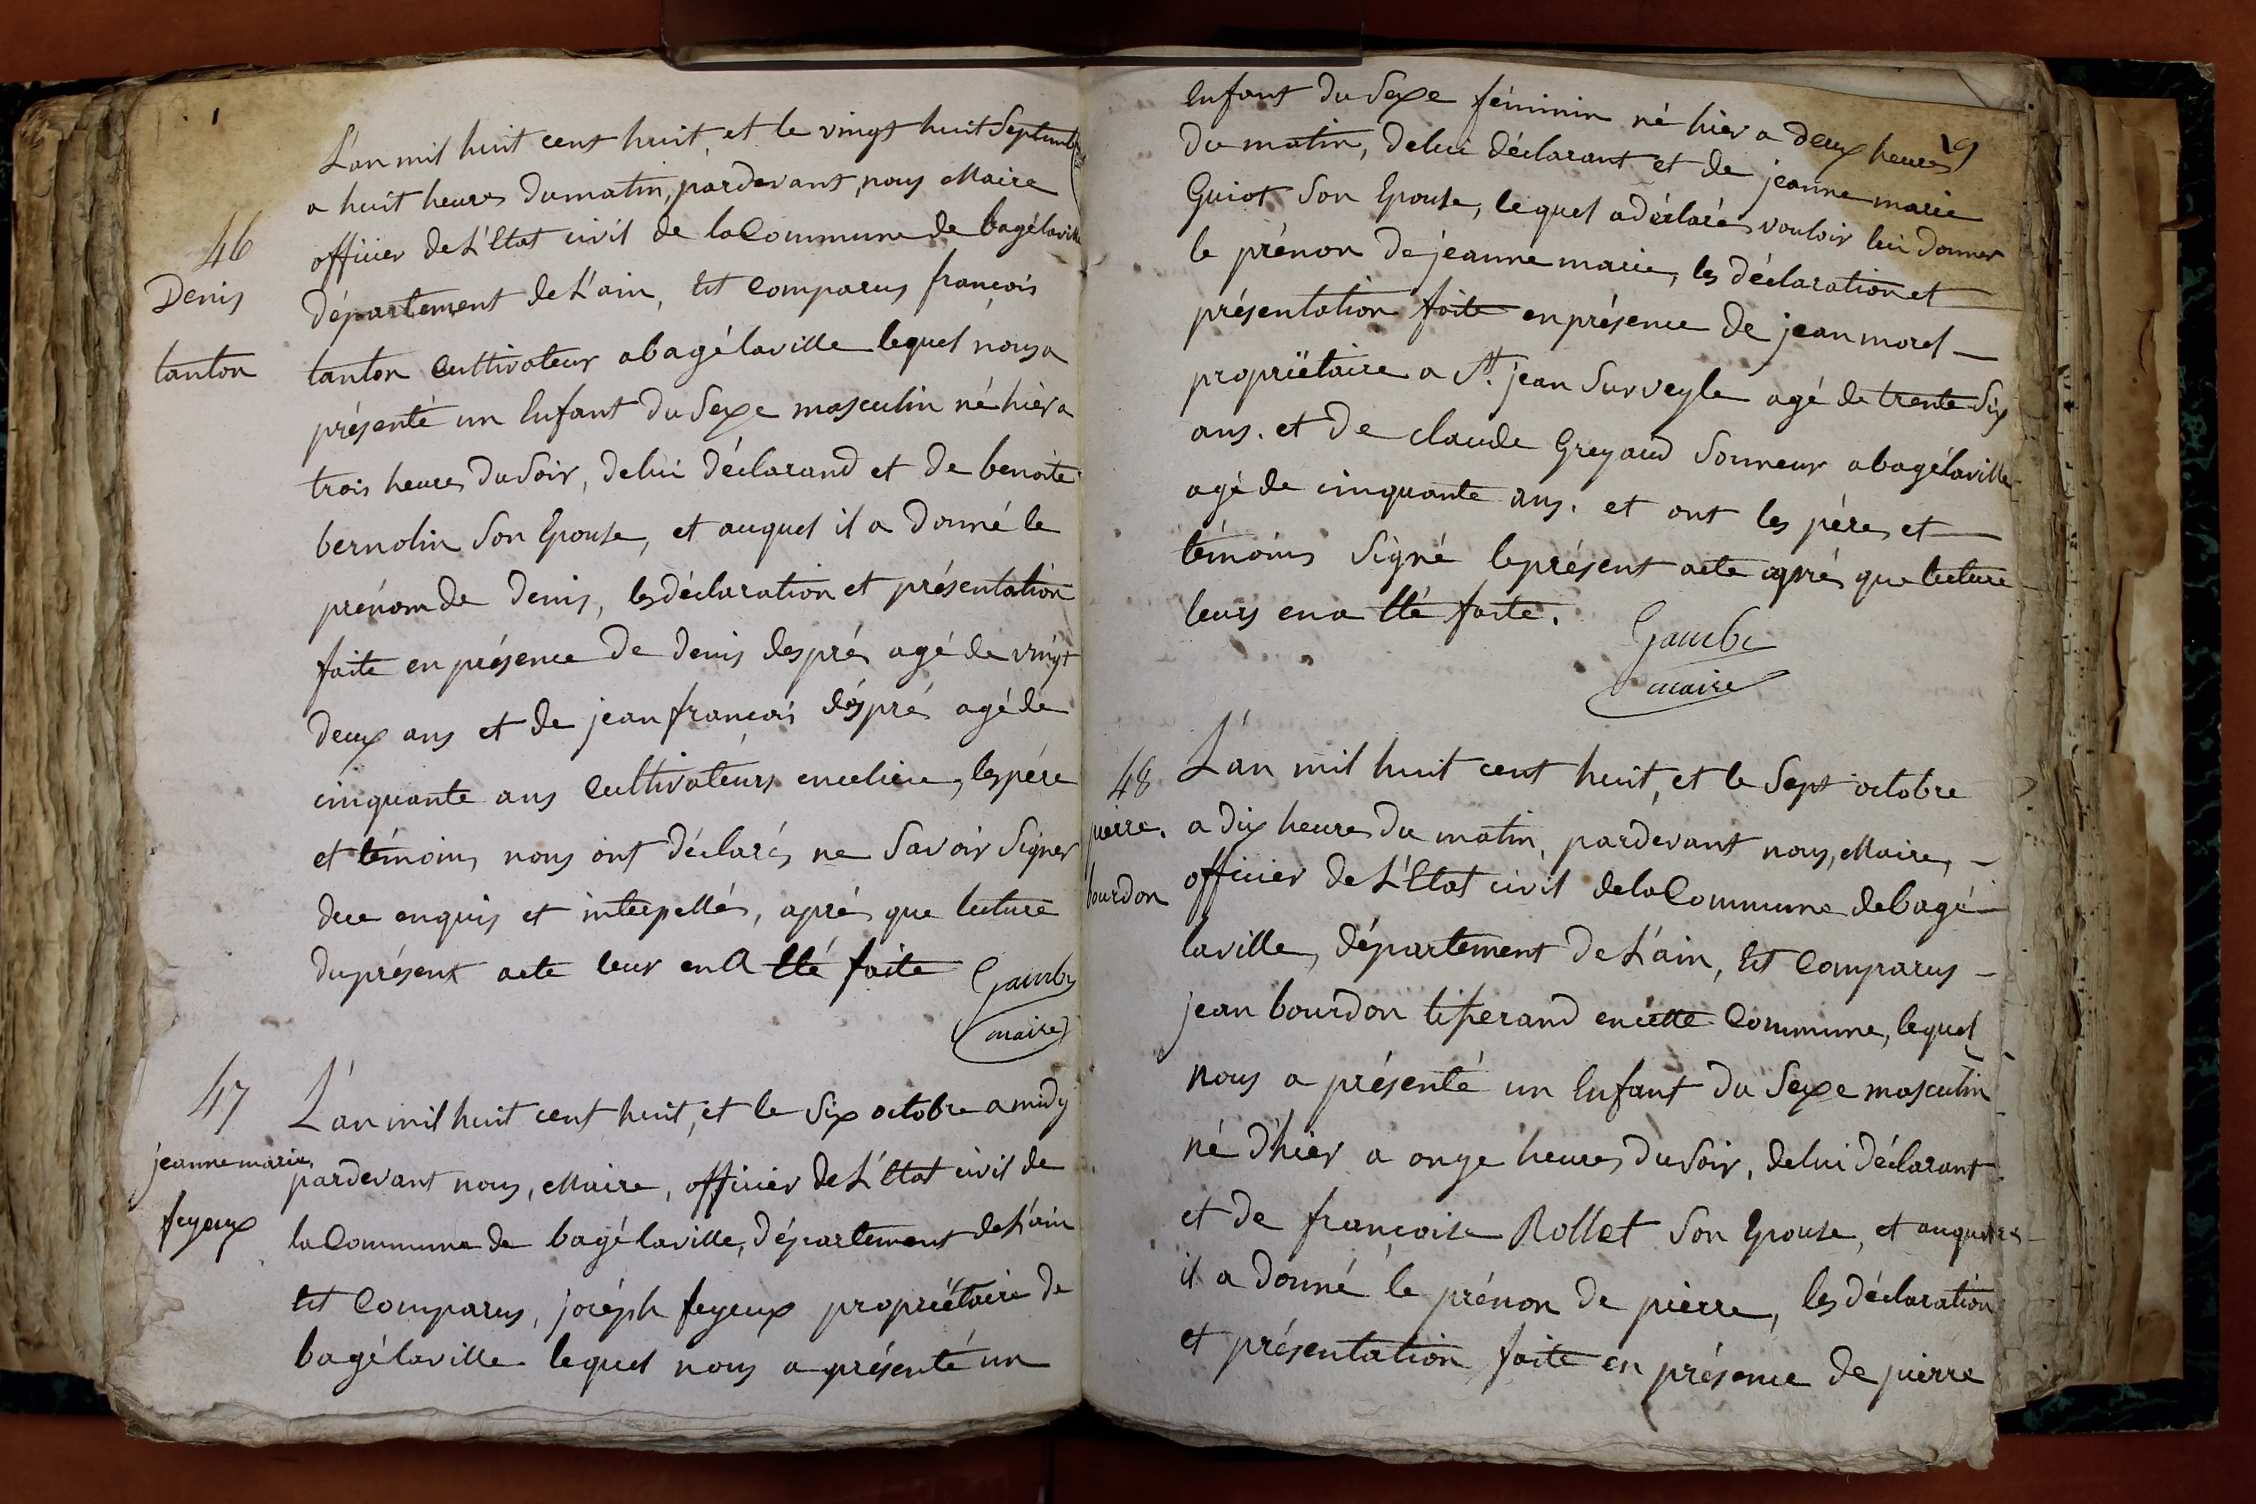 46
Denis
tanton
L'an mil huit cent huit, et le vingt huit Septembre
a huit heures du matin, pardevant nous Maire
officier de L'Etat civil de la Commune de bagélaville
département de L'ain, Est Comparus françois
tanton Cultivateur a bagélaville lequel nous a
présenté un Enfant du Sexe masculin né hier a
trois heures du Soir, de lui déclarand et de benoite
bernolin Son Epouse, et auquel il a donné le
prénom de Denis, les déclaration et présentation
faite en présence de denis després agé de vingt
deux ans et de jean françois després agé de
cinquante ans Cultivateurs en ce lieu, les père
et témoins nous ont déclarés ne Savoir Signer
de ce enquis et interpellés, après que lecture
du présent acte leur en A Eté faite
Gambi
maire
47
jeanne marie
feyeux
L'an mil huit cent huit, et le Six octobre a midy
pardevant nous, Maire, officier de L'Etat civil de
la Commune de bagélaville, département de L'ain
Est Comparus, joséph feyeux propriétaire de
bagélaville lequel nous a présenté un
19
Enfant du Sexe féminin né hier a deux heures
du matin, de lui déclarant et de jeanne marie
Guiot Son Epouse, lequel a déclarés vouloir lui donner
le prénon de jeanne marie, les déclaration et
présentation faite en présence de jean morel
propriëtaire a St. jean Surveyle agé de trente Six
ans. et de claude Greyaud Sonneur a bagélaville
agé de cinquante ans. et ont les père et
témoins Signé le présent acte après que lecture
leurs en a Eté faite.
Gambi
maire
48
pierre.
bourdon
L'an mil huit cent huit, et le Sept octobre
a dix heures du matin, pardevant nous, Maire,
officier de L'Etat civil de la Commune de bagé
laville, département de L'ain, Est Comparus
jean bourdon tiserand en cette Commune, lequel
nous a présenté un Enfant du Sexe masculin
né d'hier a onze heures du Soir, de lui déclarant
et de françoise Rollet Son Epouse, et auquel
il a donné le prénon de pierre, les déclaration
et présentation faite en présence de pierre